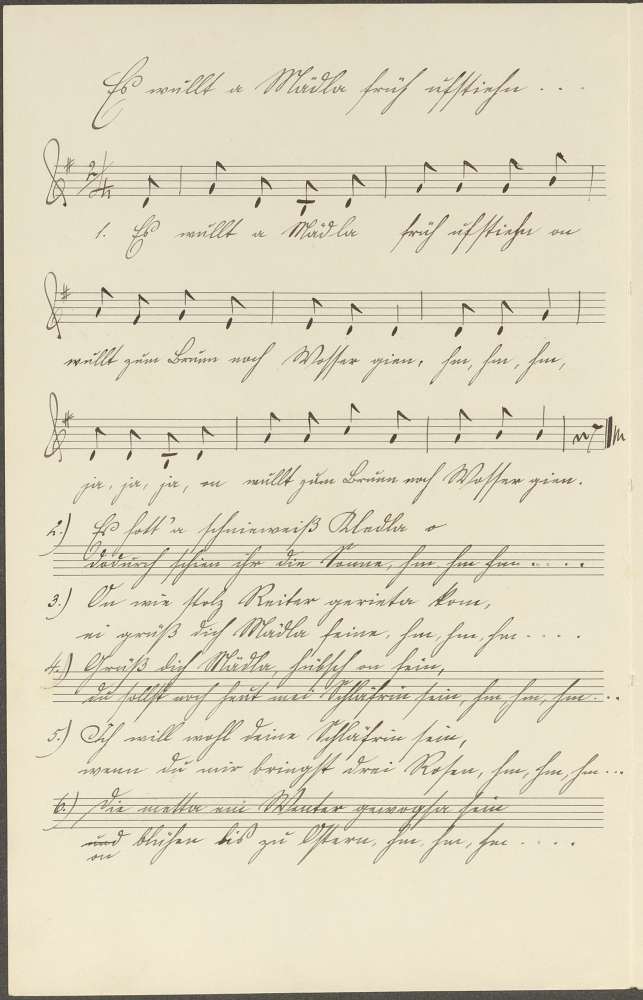 Es wullt a Mädla früh ufstiehn . . .
2/4
1. Es wullt a Mädla früh ufstiehn on
wullt zum Brunn noch Wosser gien, hm, hm, hm,
ja, ja, ja, on wullt zum Brunn noch Wosser gien.
2.) Es hott' a schnieweiß Kledla o
dodurch schien ihr die Sonne, hm hm hm . . . .
3.) On wie stolz Reiter gerieta kom,
ei grüß dich Mädla feine, hm, hm, hm . . . .
4.) Grüß dich Mädla, hübsch on fein,
du sollst noch heut mei Schläfrin sein, hm hm, hm . . .
5.) Ich will wohl deine Schläfrin sein,
wenn du mir bringst drei Rosen, hm, hm, hm . . .
6.) Die metta eim Wenter gewoxa sein
und blühen bis zu Ostern, hm, hm, hm . . . . .
on